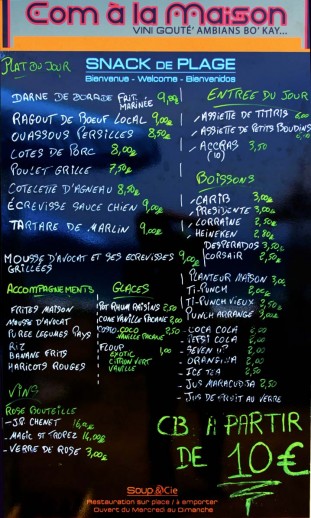 Com à la Maison
VINI GOUTÉ' AMBIANS BO' KAY...
SNACK DE PLAGE
Bienvenue - Welcome - Bienvenidos
PLAT DU JOUR
DARNE DE DORADE FRIT. MARINÉE 9,00€
RAGOUT DE BOEUF LOCAL 9,00€
OUASSOUS PERSILLES 8,50€
COTES DE PORC 8,00€
POULET GRILLE 7,50€
COTELETTE D'AGNEAU 8,50€
ÉCREVISSE SAUCE CHIEN 9,00€
TARTARE DE MARLIN 9,00€
MOUSSE D'AVOCAT ET SES ECREVISSES 9,00€
GRILLÉES
ENTRÉE DU JOUR
- ASSIETTE DE TITIRIS 6,00
- ASSIETTE DE PETITS BOUDINS
- ACCRAS 3,50
(10)
BOISSONS
- CARIB 3,00€
- PRESIDENTE 3,00€
- LORRAINE 2,50€
- HEINEKEN 2,80€
DESPERADOS 3,50€
CORSAIR 2,50€
PLANTEUR MAISON 3,00
TI-PUNCH 2,00
TI-PUNCH VIEUX 2,50
PUNCH ARRANGÉ 3,00€
- COCA COLA 2,00
- PEPSI COLA 2,00
- SEVEN UP 2,00
- ORANGINA 2,00
- ICE TEA 2,50
- JUS MARACUDJA 2,50
- JUS DE FRUIT AU VERRE
ACCOMPAGNEMENTS
FRITES MAISON
MOUSSE D'AVOCAT
PUREE LEGUMES PAYS
RIZ
BANANE FRITS
HARICOTS ROUGES
GLACES
POT RHUM RAISINS 2,50
CONE VANILLE PACANE 2,00
COCO
VANILLE PACANE 2,50
FLOUP
EXOTIC 1,00
CITRON VERT
VANILLE
VINS
ROSE BOUTEILLE
- J.P. CHENET 16,00€
- MAGIC ST TROPEZ 16,00€
- VERRE DE ROSÉ 3,00€
CB À PARTIR
DE 10€
Soup & Cie
Restauration sur place / à emporter
Ouvert du Mercredi au Dimanche